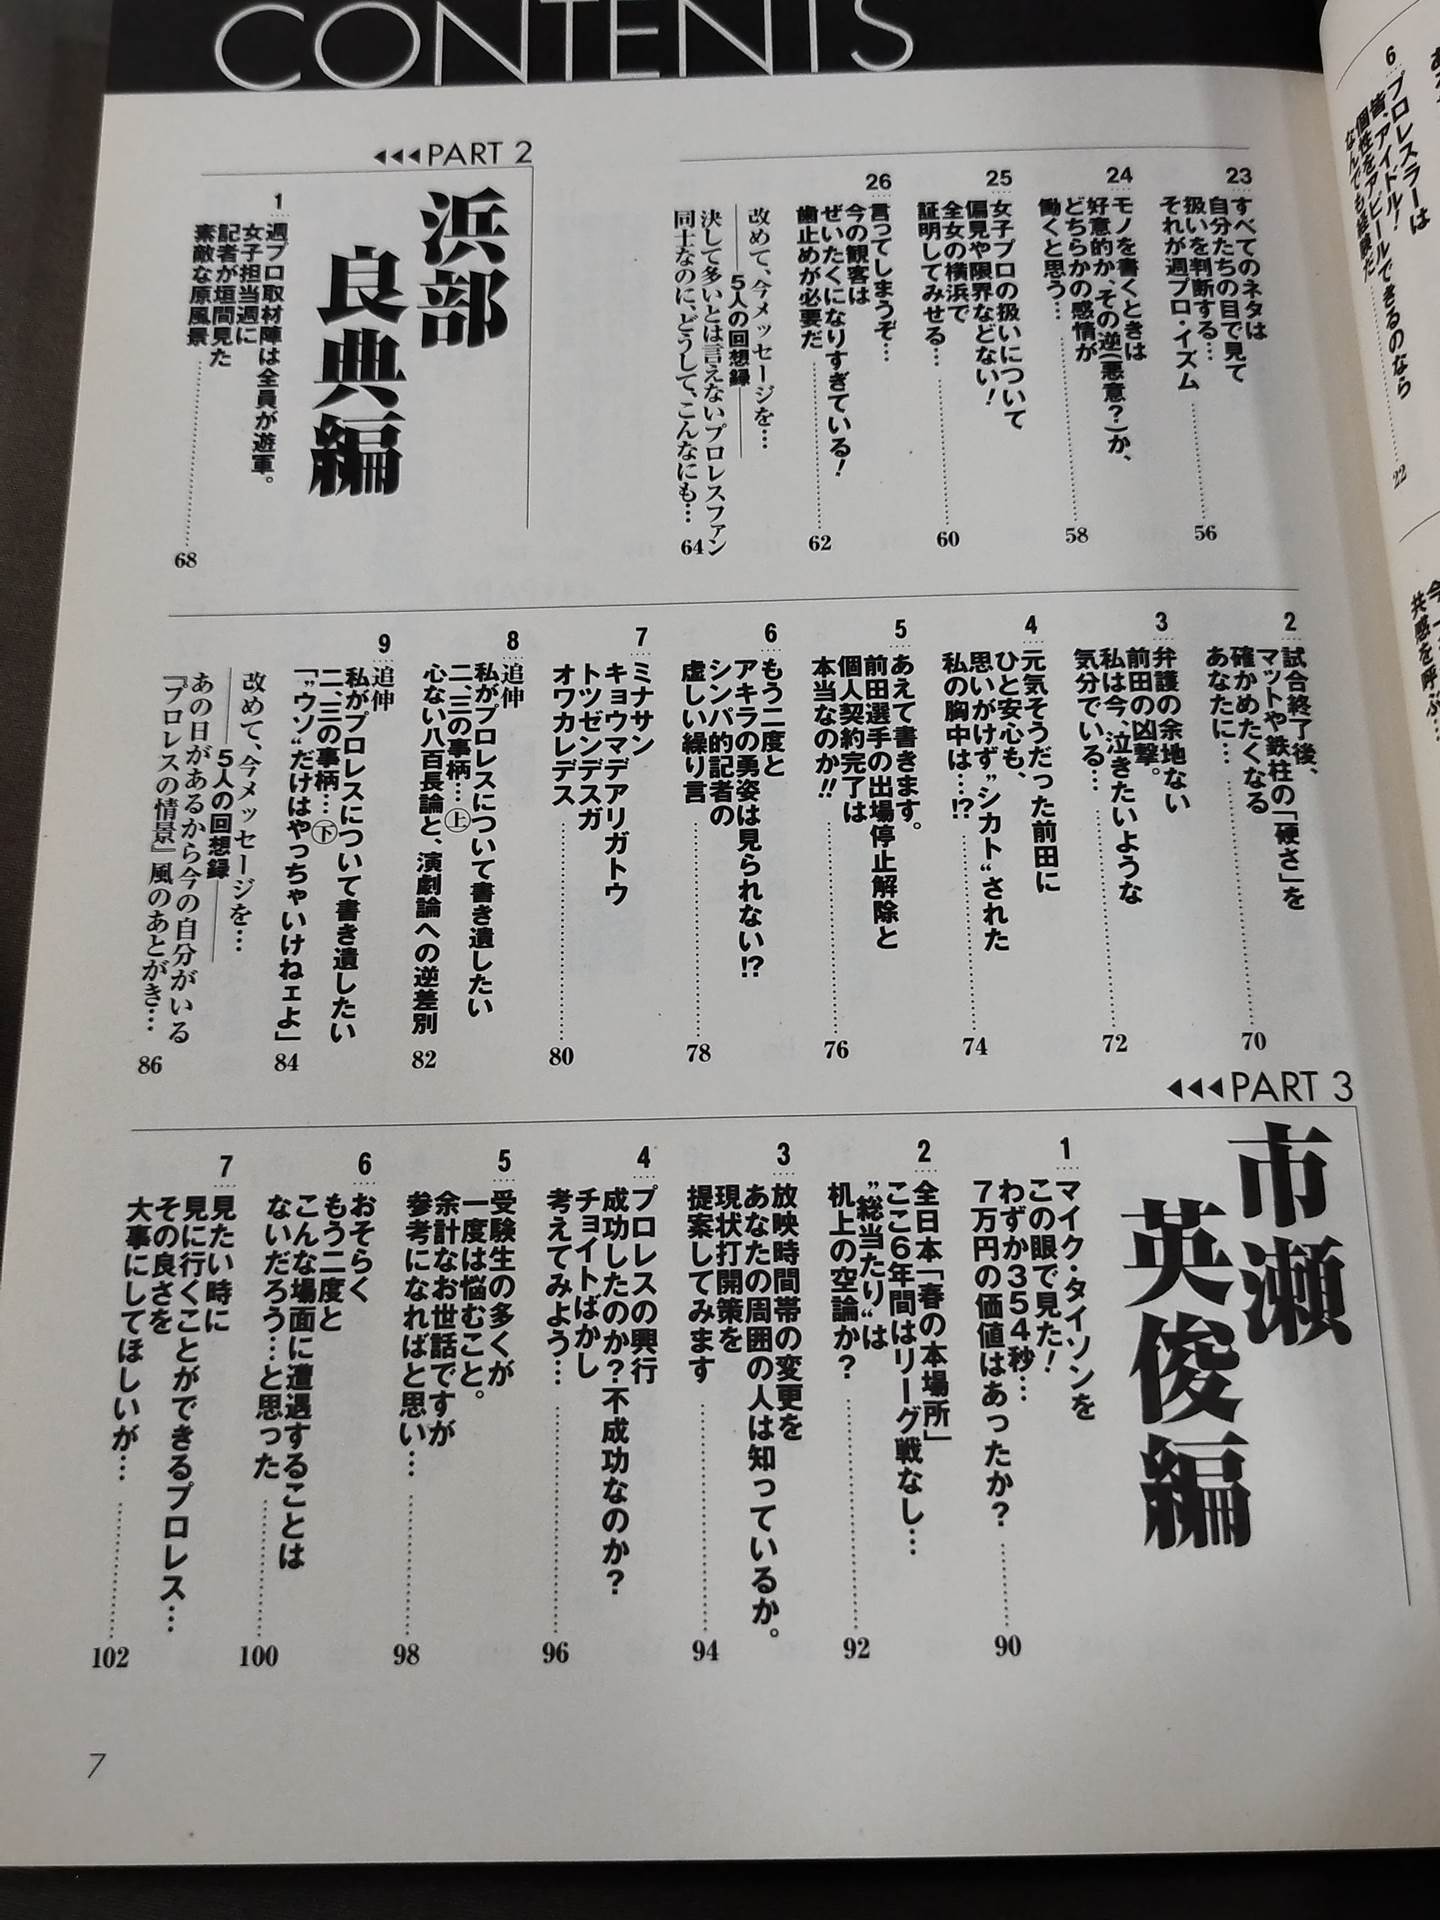 CONTENTS
6
プロレスラーは
皆、アイドル!
個性をアピールできるのなら
なんでも経験だ
22
共感を呼ぶ…
23
すべてのネタは
自分たちの目で見て
扱いを判断する…
それが週プロ・イズム
56
24
モノを書くときは
好意的か、その逆(悪意?)か、
どちらかの感情が
働くと思う…
58
25
女子プロの扱いについて
偏見や限界などない!
全女の横浜で
証明してみせる…
60
26
言ってしまうぞ…
今の観客は
ぜいたくになりすぎている!
歯止めが必要だ
62
改めて、今メッセージを…
5人の回想録
決して多いとは言えないプロレスファン
同士なのに、どうして、こんなにも…
64
◀◀◀PART 2
浜部
良典編
1
週プロ取材陣は全員が遊軍。
女子担当週に
記者が垣間見た
素敵な原風景
68
2
試合終了後、
マットや鉄柱の「硬さ」を
確かめたくなる
あなたに…
70
3
弁護の余地ない
前田の凶撃。
私は今、泣きたいような
気分でいる…
72
4
元気そうだった前田に
ひと安心も、
思いがけず"シカト"された
私の胸中は…!?
74
5
あえて書きます。
前田選手の出場停止解除と
個人契約完了は
本当なのか!!
76
6
もう二度と
アキラの勇姿は見られない!?
シンパ的記者の
虚しい繰り言
78
7
ミナサン
キョウマデアリガトウ
トツゼンデスガ
オワカレデス
80
8
追伸
私がプロレスについて書き遺したい
二、三の事柄…㊤
心ない八百長論と、演劇論への逆差別
82
9
追伸
私がプロレスについて書き遺したい
二、三の事柄…㊦
「"ウソ"だけはやっちゃいけねェよ」
84
改めて、今メッセージを…
5人の回想録
あの日があるから今の自分がいる
『プロレスの情景』風のあとがき…
86
◀◀◀PART 3
市瀬
英俊編
1
マイク・タイソンを
この眼で見た!
わずか354秒…
7万円の価値はあったか?
90
2
全日本「春の本場所」
ここ6年間はリーグ戦なし…
"総当たり"は
机上の空論か?
92
3
放映時間帯の変更を
あなたの周囲の人は知っているか。
現状打開策を
提案してみます
94
4
プロレスの興行
成功したのか?不成功なのか?
チョイトばかし
考えてみよう…
96
5
受験生の多くが
一度は悩むこと。
余計なお世話ですが
参考になればと思い…
98
6
おそらく
もう二度と
こんな場面に遭遇することは
ないだろう…と思った
100
7
見たい時に
見に行くことができるプロレス…
その良さを
大事にしてほしいが…
102
7